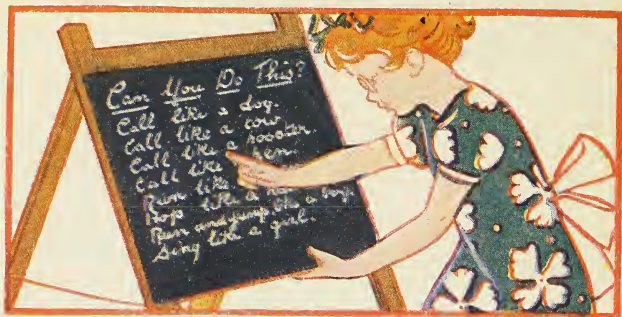 Can You Do This?
Call like a dog.
Call like a cow.
Call like a rooster.
Call like hen.
Run like
Hop like a
Run and jump like a boy.
Sing like a girl.